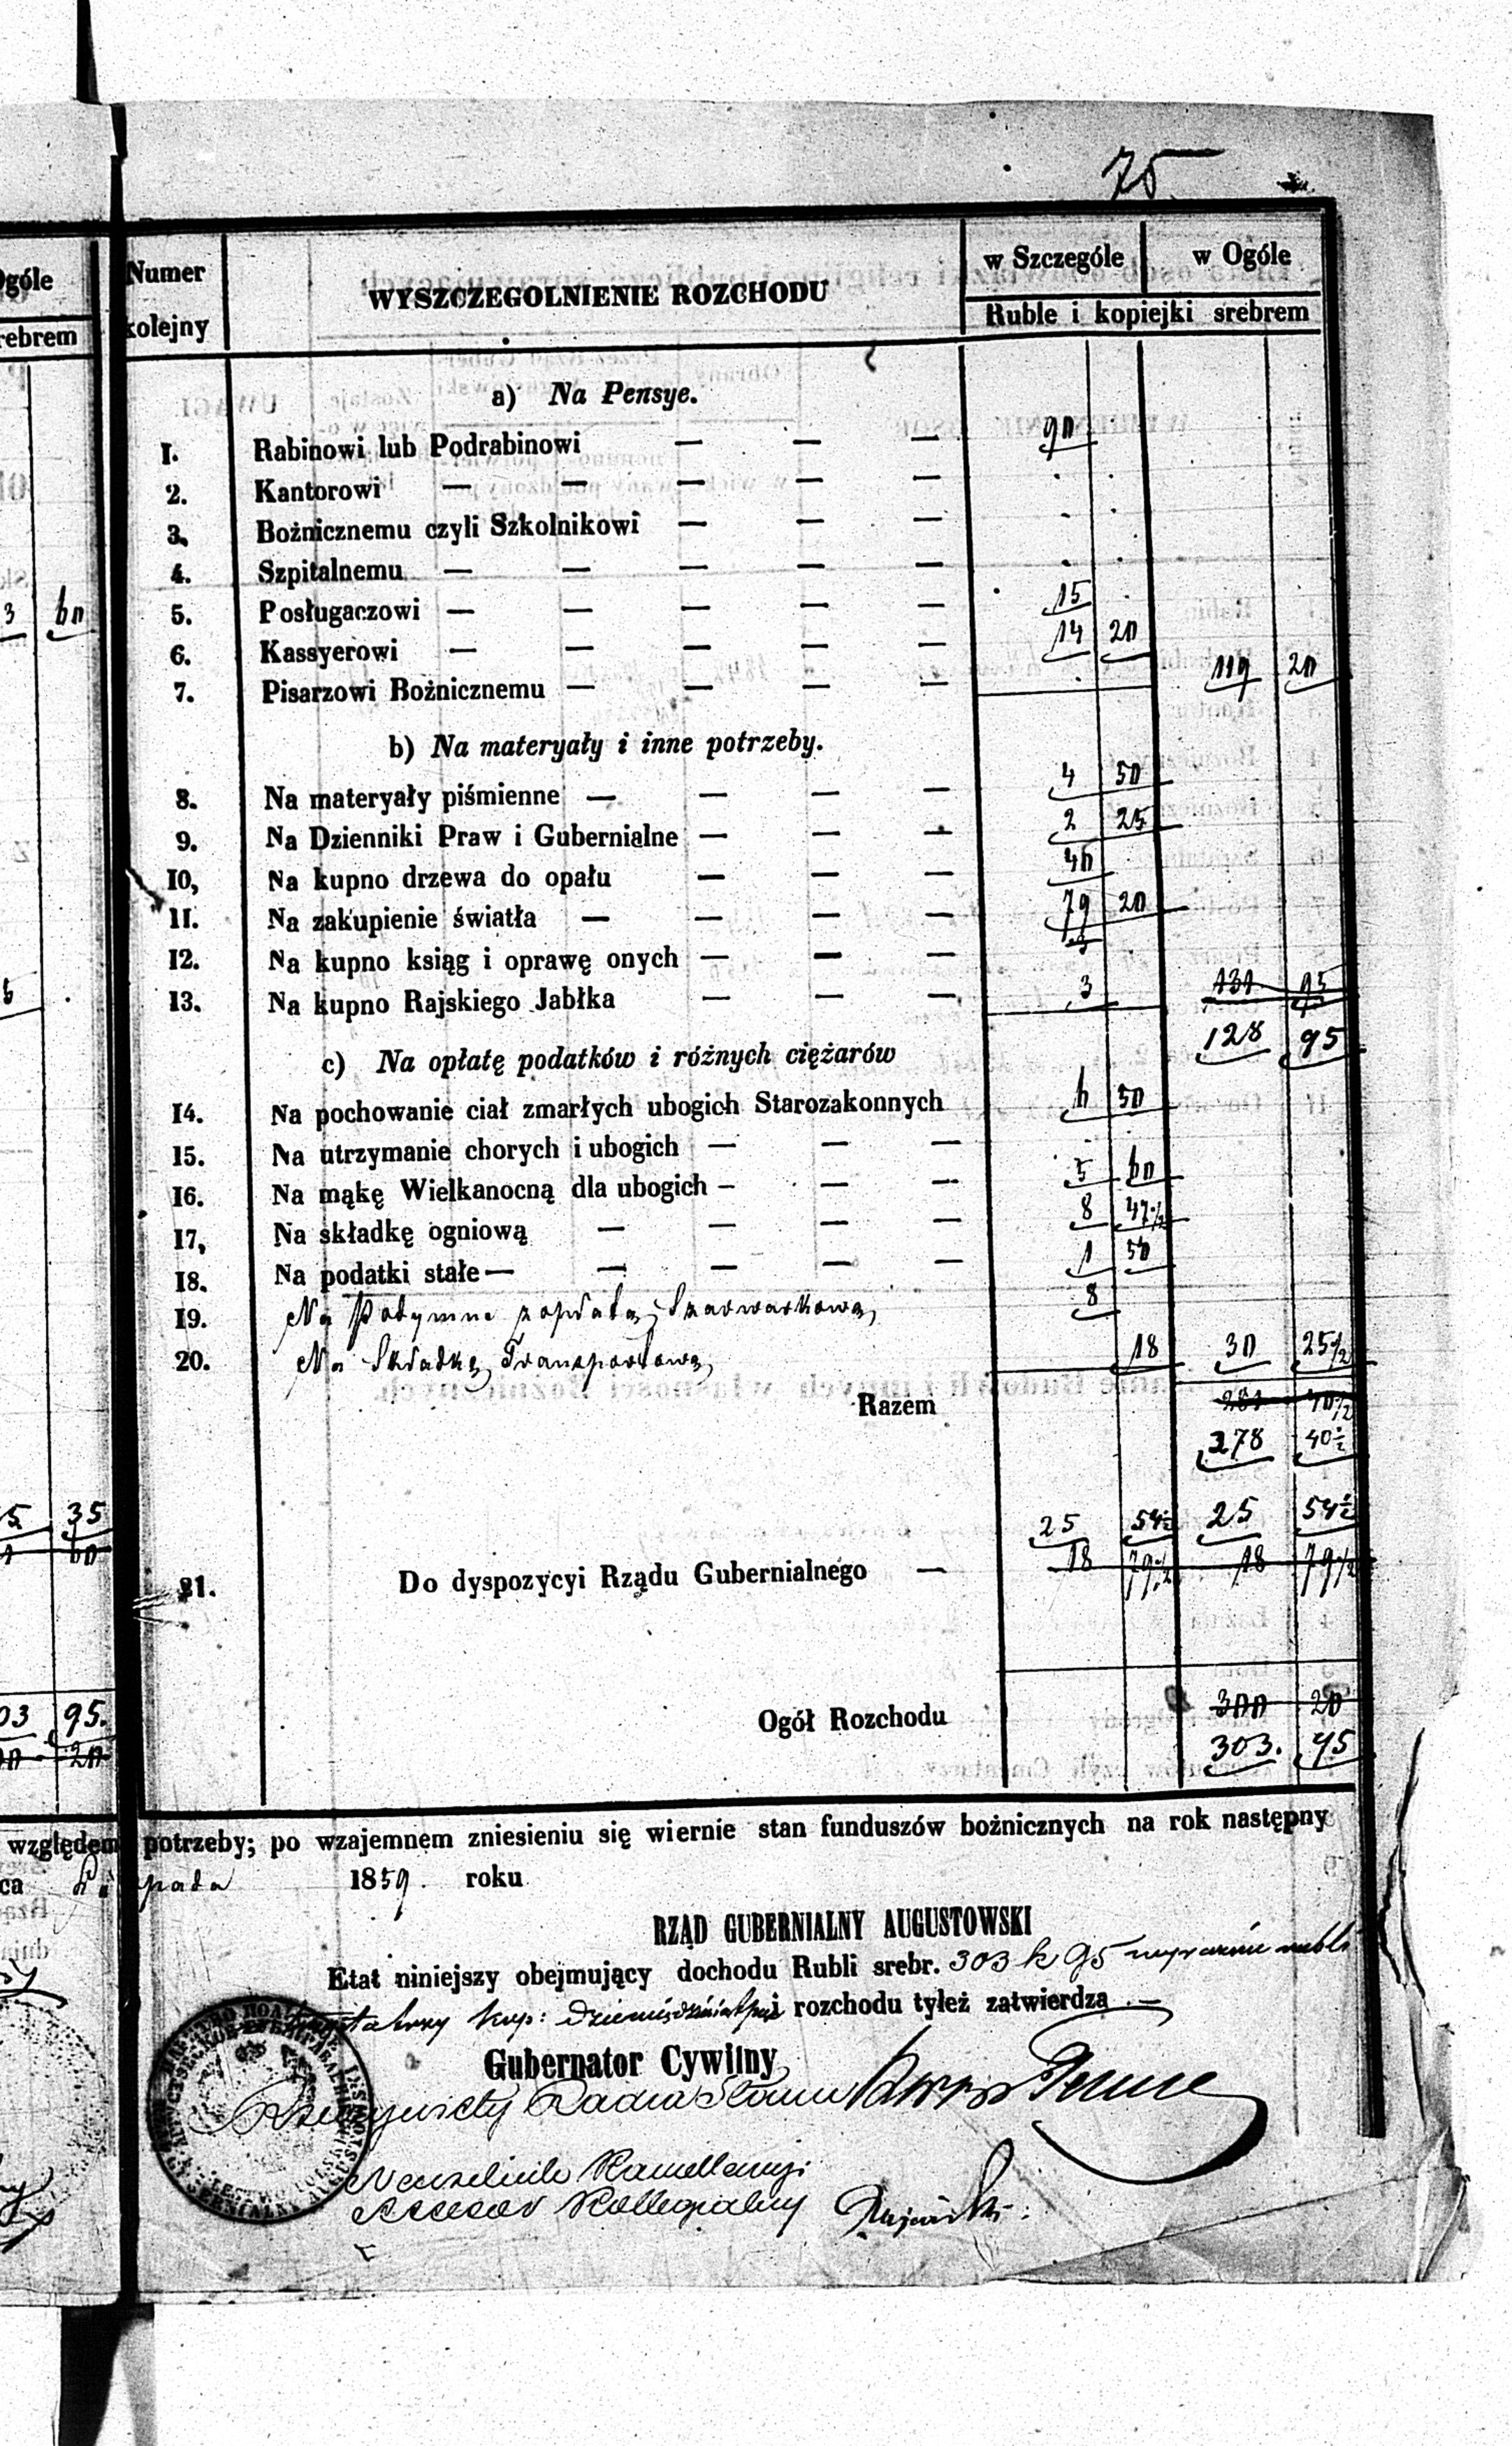 75
Ogóle
srebrem
Numer kolejny
WYSZCZEGOLNIENIE ROZCHODU
w Szczególe w Ogóle
Ruble i kopiejki srebrem
a) Na Pensye.
1. Rabinowi lub Podrabinowi — — — 90
2. Kantorowi — — — — —
3. Bożnicznemu czyli Szkolnikowi — — —
4. Szpitalnemu — — — — —
5. Posługaczowi — — — — — 15
6. Kassyerowi — — — — — 14 20
7. Pisarzowi Bożnicznemu — — — — 119 20
b) Na materyały i inne potrzeby.
8. Na materyały piśmienne — — — — 4 50
9. Na Dzienniki Praw i Gubernialne — — — 2 25
10, Na kupno drzewa do opału — — — 40
11. Na zakupienie światła — — — — 79 20
12. Na kupno ksiąg i oprawę onych — — —
13. Na kupno Rajskiego Jabłka — — — 3 131 95
128 95
c) Na opłatę podatków i różnych ciężarów
14. Na pochowanie ciał zmarłych ubogich Starozakonnych 6 50
15. Na utrzymanie chorych i ubogich — — —
16. Na mąkę Wielkanocną dla ubogich — — — 5 60
17, Na składkę ogniową — — — — 8 47½
18. Na podatki stałe — — — — — 1 50
19. Na Podymne z opłatą Szarwarkową 8
20. Na Składkę Transportową 18 30 25½
Razem 281 40½
278 40½
25 54½ 25 54½
21. Do dyspozycyi Rządu Gubernialnego — 18 79½ 18 79½
Ogół Rozchodu 300 20
303. 95
3 60
5 35
60
03 95.
20
względem potrzeby; po wzajemnem zniesieniu się wiernie stan funduszów bożnicznych na rok następny
ca pada 1859. roku
RZĄD GUBERNIALNY AUGUSTOWSKI
Etat niniejszy obejmujący dochodu Rubli srebr. 303 k 95 wyraźnie rubli
trzysta trzy kop: dziewięćdziesiąt pięć i rozchodu tyleż zatwierdza.—
Gubernator Cywilny
Rzeczywisty Radca Stanu
Naczelnik Kancellaryi
Assesor Kollegialny